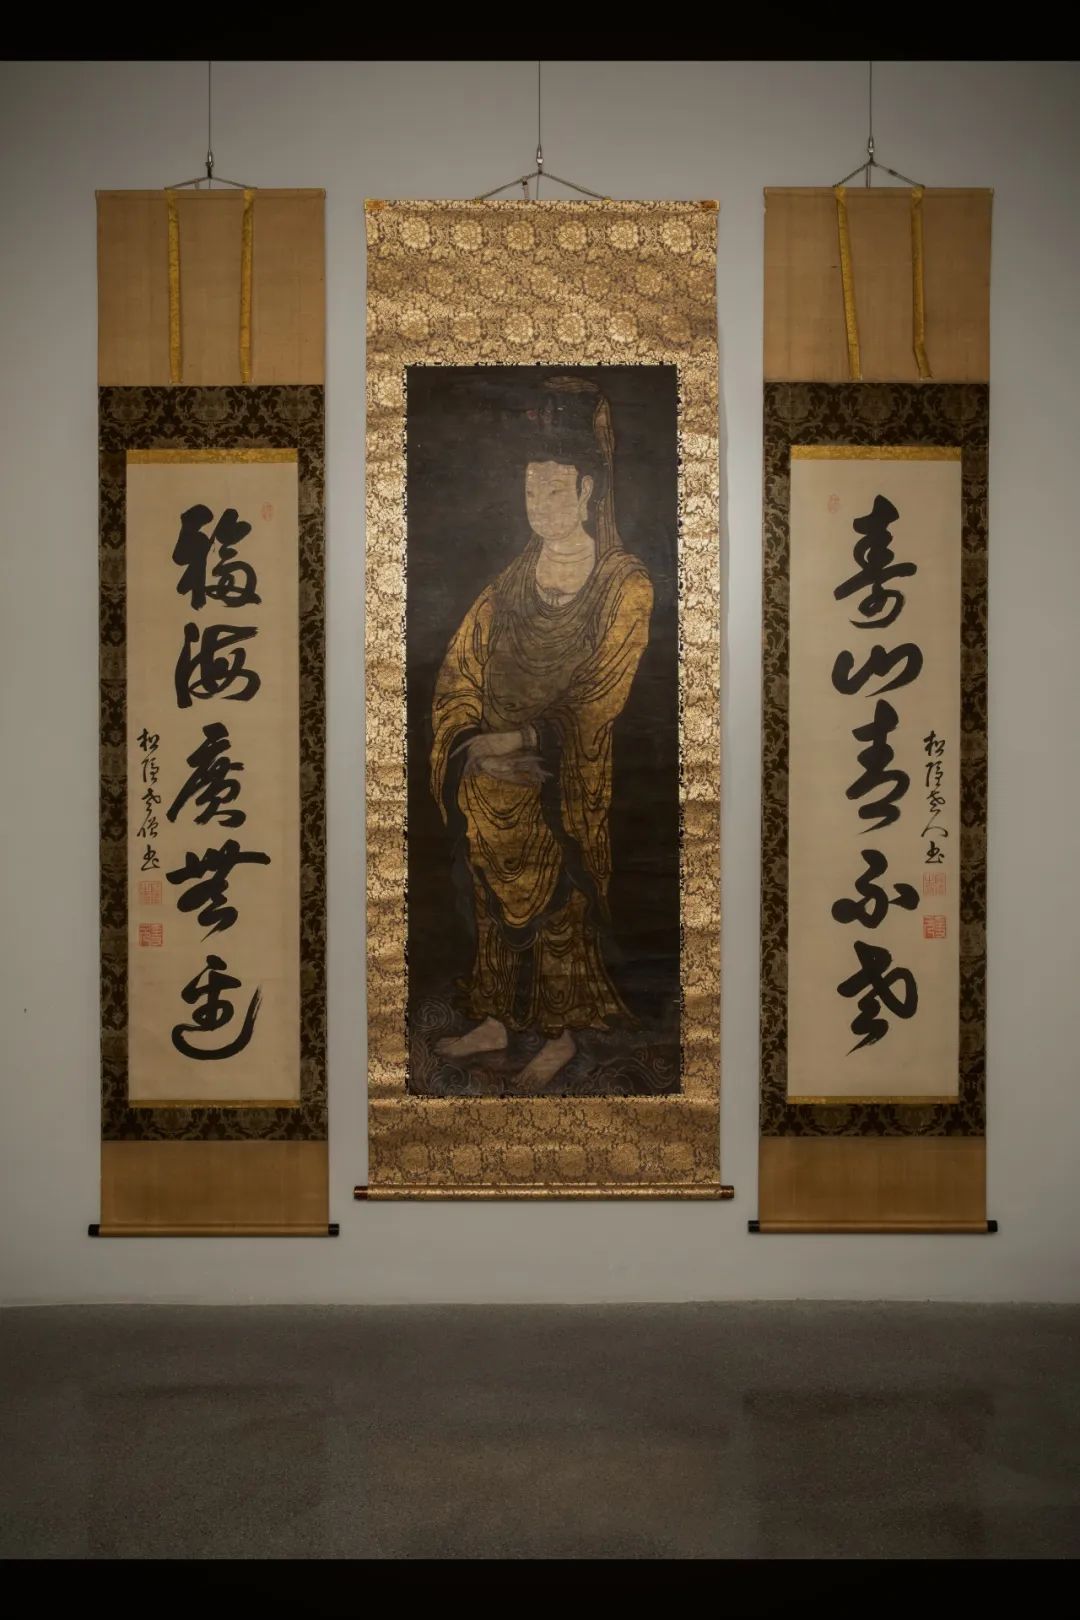 壽山青不老
松隱老人書
福海廣無邊
松隱老僧書